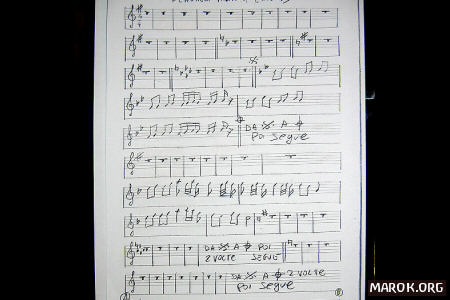 DA 𝄋 A 𝄌
POI SEGUE
DA 𝄋 A 𝄌 POI
2 VOLTE SEGUE
DA 𝄋 A 𝄌 2 VOLTE
POI SEGUE
MAROK.ORG